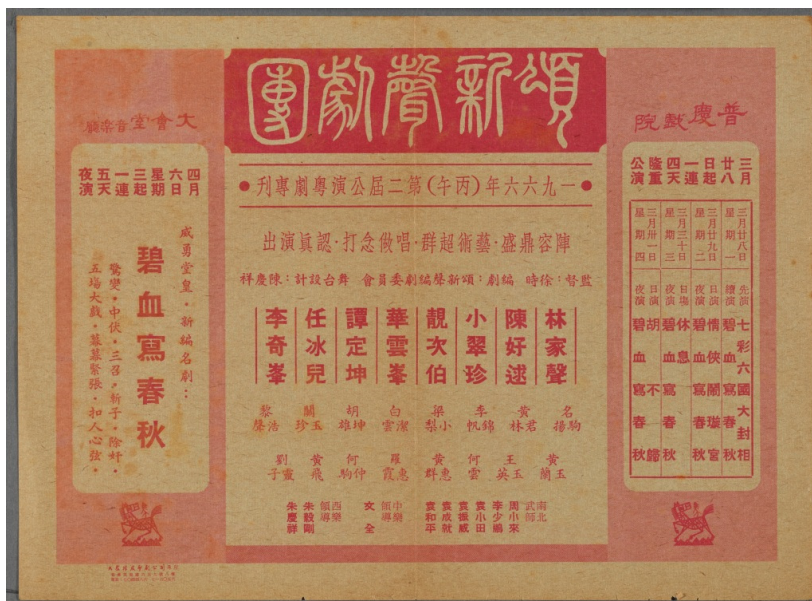 頌新聲劇團
●一九六六年(丙午)第二屆公演粵劇專刊●
陣容鼎盛·藝術超群·唱做念打·認眞演出
監督:徐時 編劇:頌新聲編劇委員會 舞台設計:陳慶祥
林家聲
陳好逑
小翠珍
靚次伯
華雲峯
譚定坤
任冰兒
李奇峯
名駒揚
黃君林
李錦帆
梁小梨
白潔雲
胡坤雄
關玉珍
黎浩聲
黃玉蘭
王玉英
何雲
黃惠群
羅惠霞
何仲駒
黃飛
劉靈子
南北武師
周小來
李少鵬
袁小田
袁振威
袁成就
袁和平
中樂領導
文全
西樂領導
朱毅剛
朱慶祥
普慶戲院
三月
廿八
日起
一連
四天
隆重
公演
三月廿八日 星期一
先演 七彩六國大封相
續演 碧血寫春秋
三月廿九日 星期二
日演 情俠鬧璇宮
夜演 碧血寫春秋
三月三十日 星期三
日場 休息
夜演 碧血寫春秋
三月卅一日 星期四
日演 胡不歸
夜演 碧血寫春秋
大會堂音樂廳
四月
六日
星期
三起
一連
五天
夜演
威勇堂皇·新編名劇:
碧血寫春秋
驚變·中伏·三召·斬子·除奸·
五場大戲·幕幕緊張·扣人心弦·